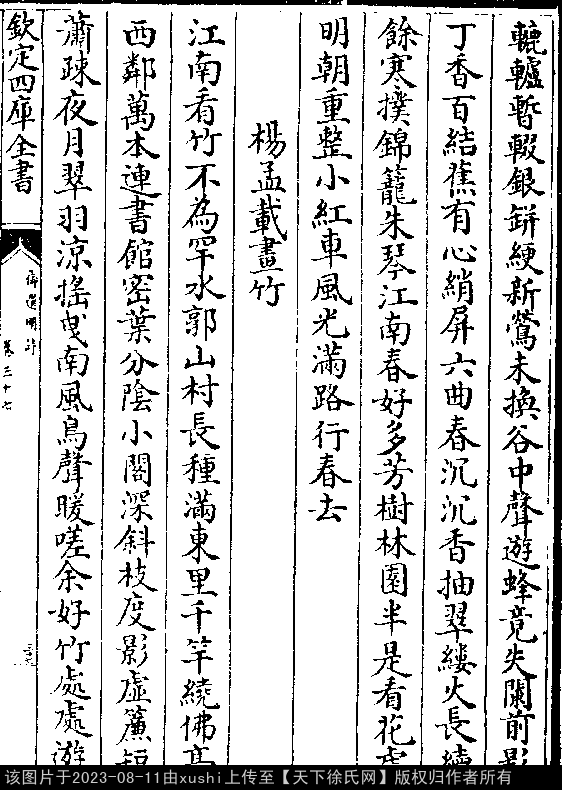 轆轤暫輟銀缾綆新鶯未換谷中聲遊蜂竟失闌前影
丁香百結蕉有心綃屏六曲春沉沉香抽翠縷火長續
餘寒撲錦籠朱琴江南春好多芳樹林園半是看花處
明朝重整小紅車風光滿路行春去
楊孟載畫竹
江南看竹不為罕水郭山村長種滿東里千竿繞佛
西鄰萬本連書館密葉分陰小閣深斜枝度影虛簾短
蕭疎夜月翠羽涼搖曳南風鳥聲暖嗟余好竹處處遊
欽定四庫全書
卷三十七
该图片于2023-08-11由xushi上传至【天下徐氏网】版权归作者所有